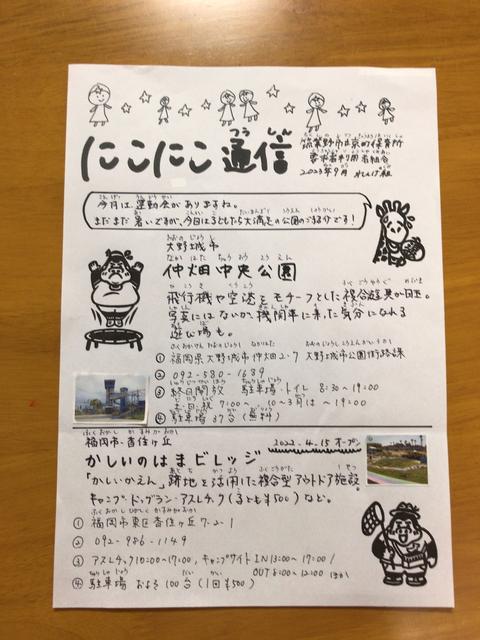 にこにこ通信
つうしん
筑紫野市立京町保育所
2023年9月
今月は、運動会がありますね。
まだまだ暑いですが、今回は子どもたち大満足の公園のご紹介です!
大野城市
仲畑中央公園
飛行機や空港をモチーフとした複合遊具が目玉。
写真にはないが、機関車に乗った気分になれる
遊び場も。
① 福岡県大野城市仲畑2-7 大野城市公園街路課
② 092-580-1689
③ 終日開放 駐車場・トイレ 8:30~19:00
土日祝 7:00~ 10~3月は~19:00
④ 駐車場 37台(無料)
福岡市・香住ヶ丘 2022.4.15 オープン
かしいのはまビレッジ
「かしいかえん」跡地を活用した複合型アウトドア施設。
キャンプ・ドッグラン・アスレチック(子ども¥500)など。
① 福岡市東区香住ヶ丘7-2-1
② 092-986-1149
③ アスレチック10:00~17:00, キャンプサイトIN13:00~17:00/
OUT8:00~12:00 ほか
④ 駐車場 およそ100台(1回¥500)